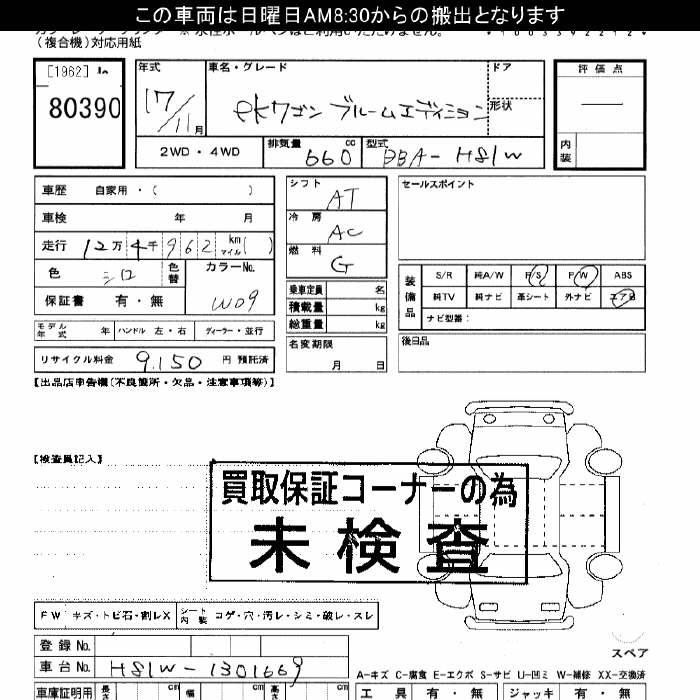 この車両は日曜日AM8:30からの搬出となります
(複合機)対応用紙
[1962]
80390
年式 17/11月
車名・グレード ekワゴン ブルームエディション
ドア
形状
評価点
内装
2WD・4WD
排気量 660 cc
型式 BBA-H81W
車歴 自家用・( )
車検 年 月
走行 12万4千962 km マイル( )
色 シロ
色替
カラーNo. W09
保証書 有・無
モデル年式 年
ハンドル 左・右
ディーラー・並行
リサイクル料金 9,150 円 預託済
シフト AT
冷房 AC
燃料 G
乗車定員 名
積載量 kg
総重量 kg
名変期限
月 日
セールスポイント
装備品
S/R 純A/W P/S P/W ABS
純TV 純ナビ 革シート 外ナビ エアB
ナビ型番:
後日品
【出品店申告欄(不良箇所・欠品・注意事項等)】
【検査員記入】
買取保証コーナーの為
未検査
FW キズ・トビ石・割レX
シート内装 コゲ・穴・汚レ・シミ・破レ・スレ
登録No.
車台No. H81W-1301669
スペア
A-キズ C-腐食 E-エクボ S-サビ U-凹ミ W-補修 XX-交換済
車庫証明用 長さ cm 幅 cm 高さ cm
工具 有・無 ジャッキ 有・無